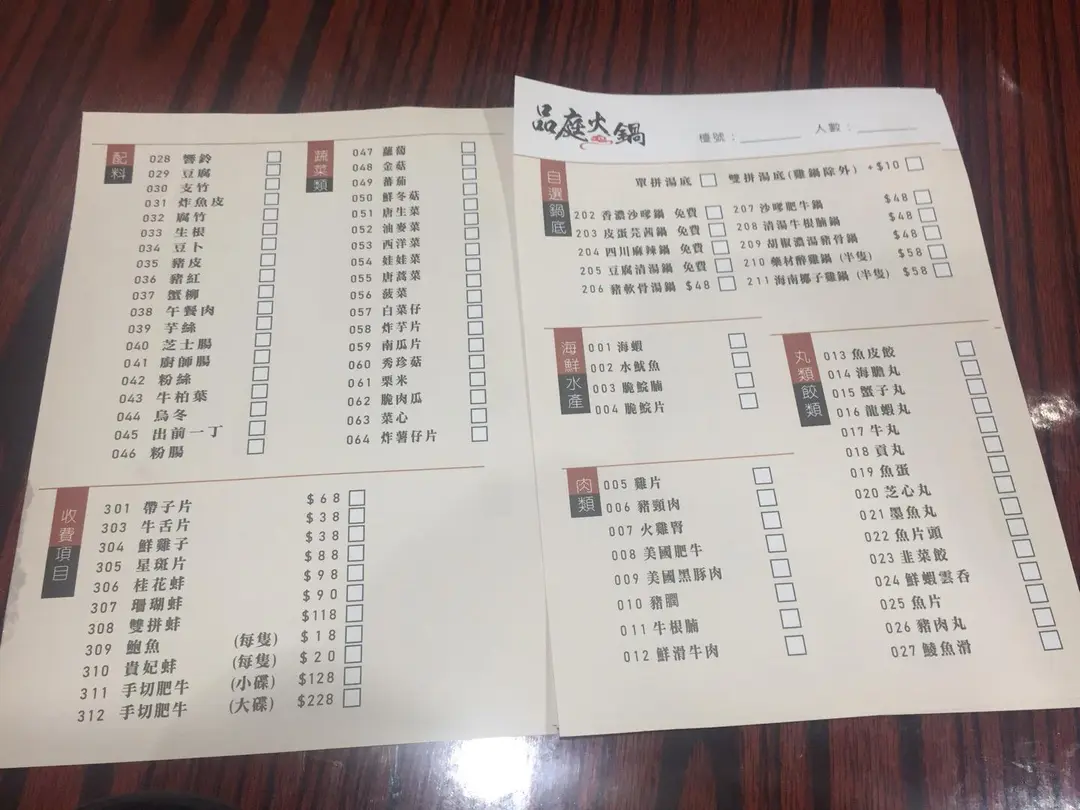 配料
028 響鈴
029 豆腐
030 支竹
031 炸魚皮
032 腐竹
033 生根
034 豆卜
035 豬皮
036 豬紅
037 蟹柳
038 午餐肉
039 芋絲
040 芝士腸
041 廚師腸
042 粉絲
043 牛柏葉
044 烏冬
045 出前一丁
046 粉腸
蔬菜類
047 蘿蔔
048 金菇
049 蕃茄
050 鮮冬菇
051 唐生菜
052 油麥菜
053 西洋菜
054 娃娃菜
055 唐蒿菜
056 菠菜
057 白菜仔
058 炸芋片
059 南瓜片
060 秀珍菇
061 栗米
062 脆肉瓜
063 菜心
064 炸薯仔片
收費項目
301 帶子片 $68
303 牛舌片 $38
304 鮮雞子 $38
305 星斑片 $88
306 桂花蚌 $98
307 珊瑚蚌 $90
308 雙拼蚌 $118
309 鮑魚 (每隻) $18
310 貴妃蚌 (每隻) $20
311 手切肥牛 (小碟) $128
312 手切肥牛 (大碟) $228
品庭火鍋
檯號：
人數：
自選鍋底
單拼湯底 雙拼湯底(雞鍋除外) +$10
202 香濃沙嗲鍋 免費
203 皮蛋芫茜鍋 免費
204 四川麻辣鍋 免費
205 豆腐清湯鍋 免費
206 豬軟骨湯鍋 $48
207 沙嗲肥牛鍋 $48
208 清湯牛根腩鍋 $48
209 胡椒濃湯豬骨鍋 $48
210 藥材醉雞鍋 (半隻) $58
211 海南椰子雞鍋 (半隻) $58
海鮮水產
001 海蝦
002 水魷魚
003 脆鯇腩
004 脆鯇片
肉類
005 雞片
006 豬頸肉
007 火雞腎
008 美國肥牛
009 美國黑豚肉
010 豬膶
011 牛根腩
012 鮮滑牛肉
丸類餃類
013 魚皮餃
014 海膽丸
015 蟹子丸
016 龍蝦丸
017 牛丸
018 貢丸
019 魚蛋
020 芝心丸
021 墨魚丸
022 魚片頭
023 韭菜餃
024 鮮蝦雲吞
025 魚片
026 豬肉丸
027 鯪魚滑